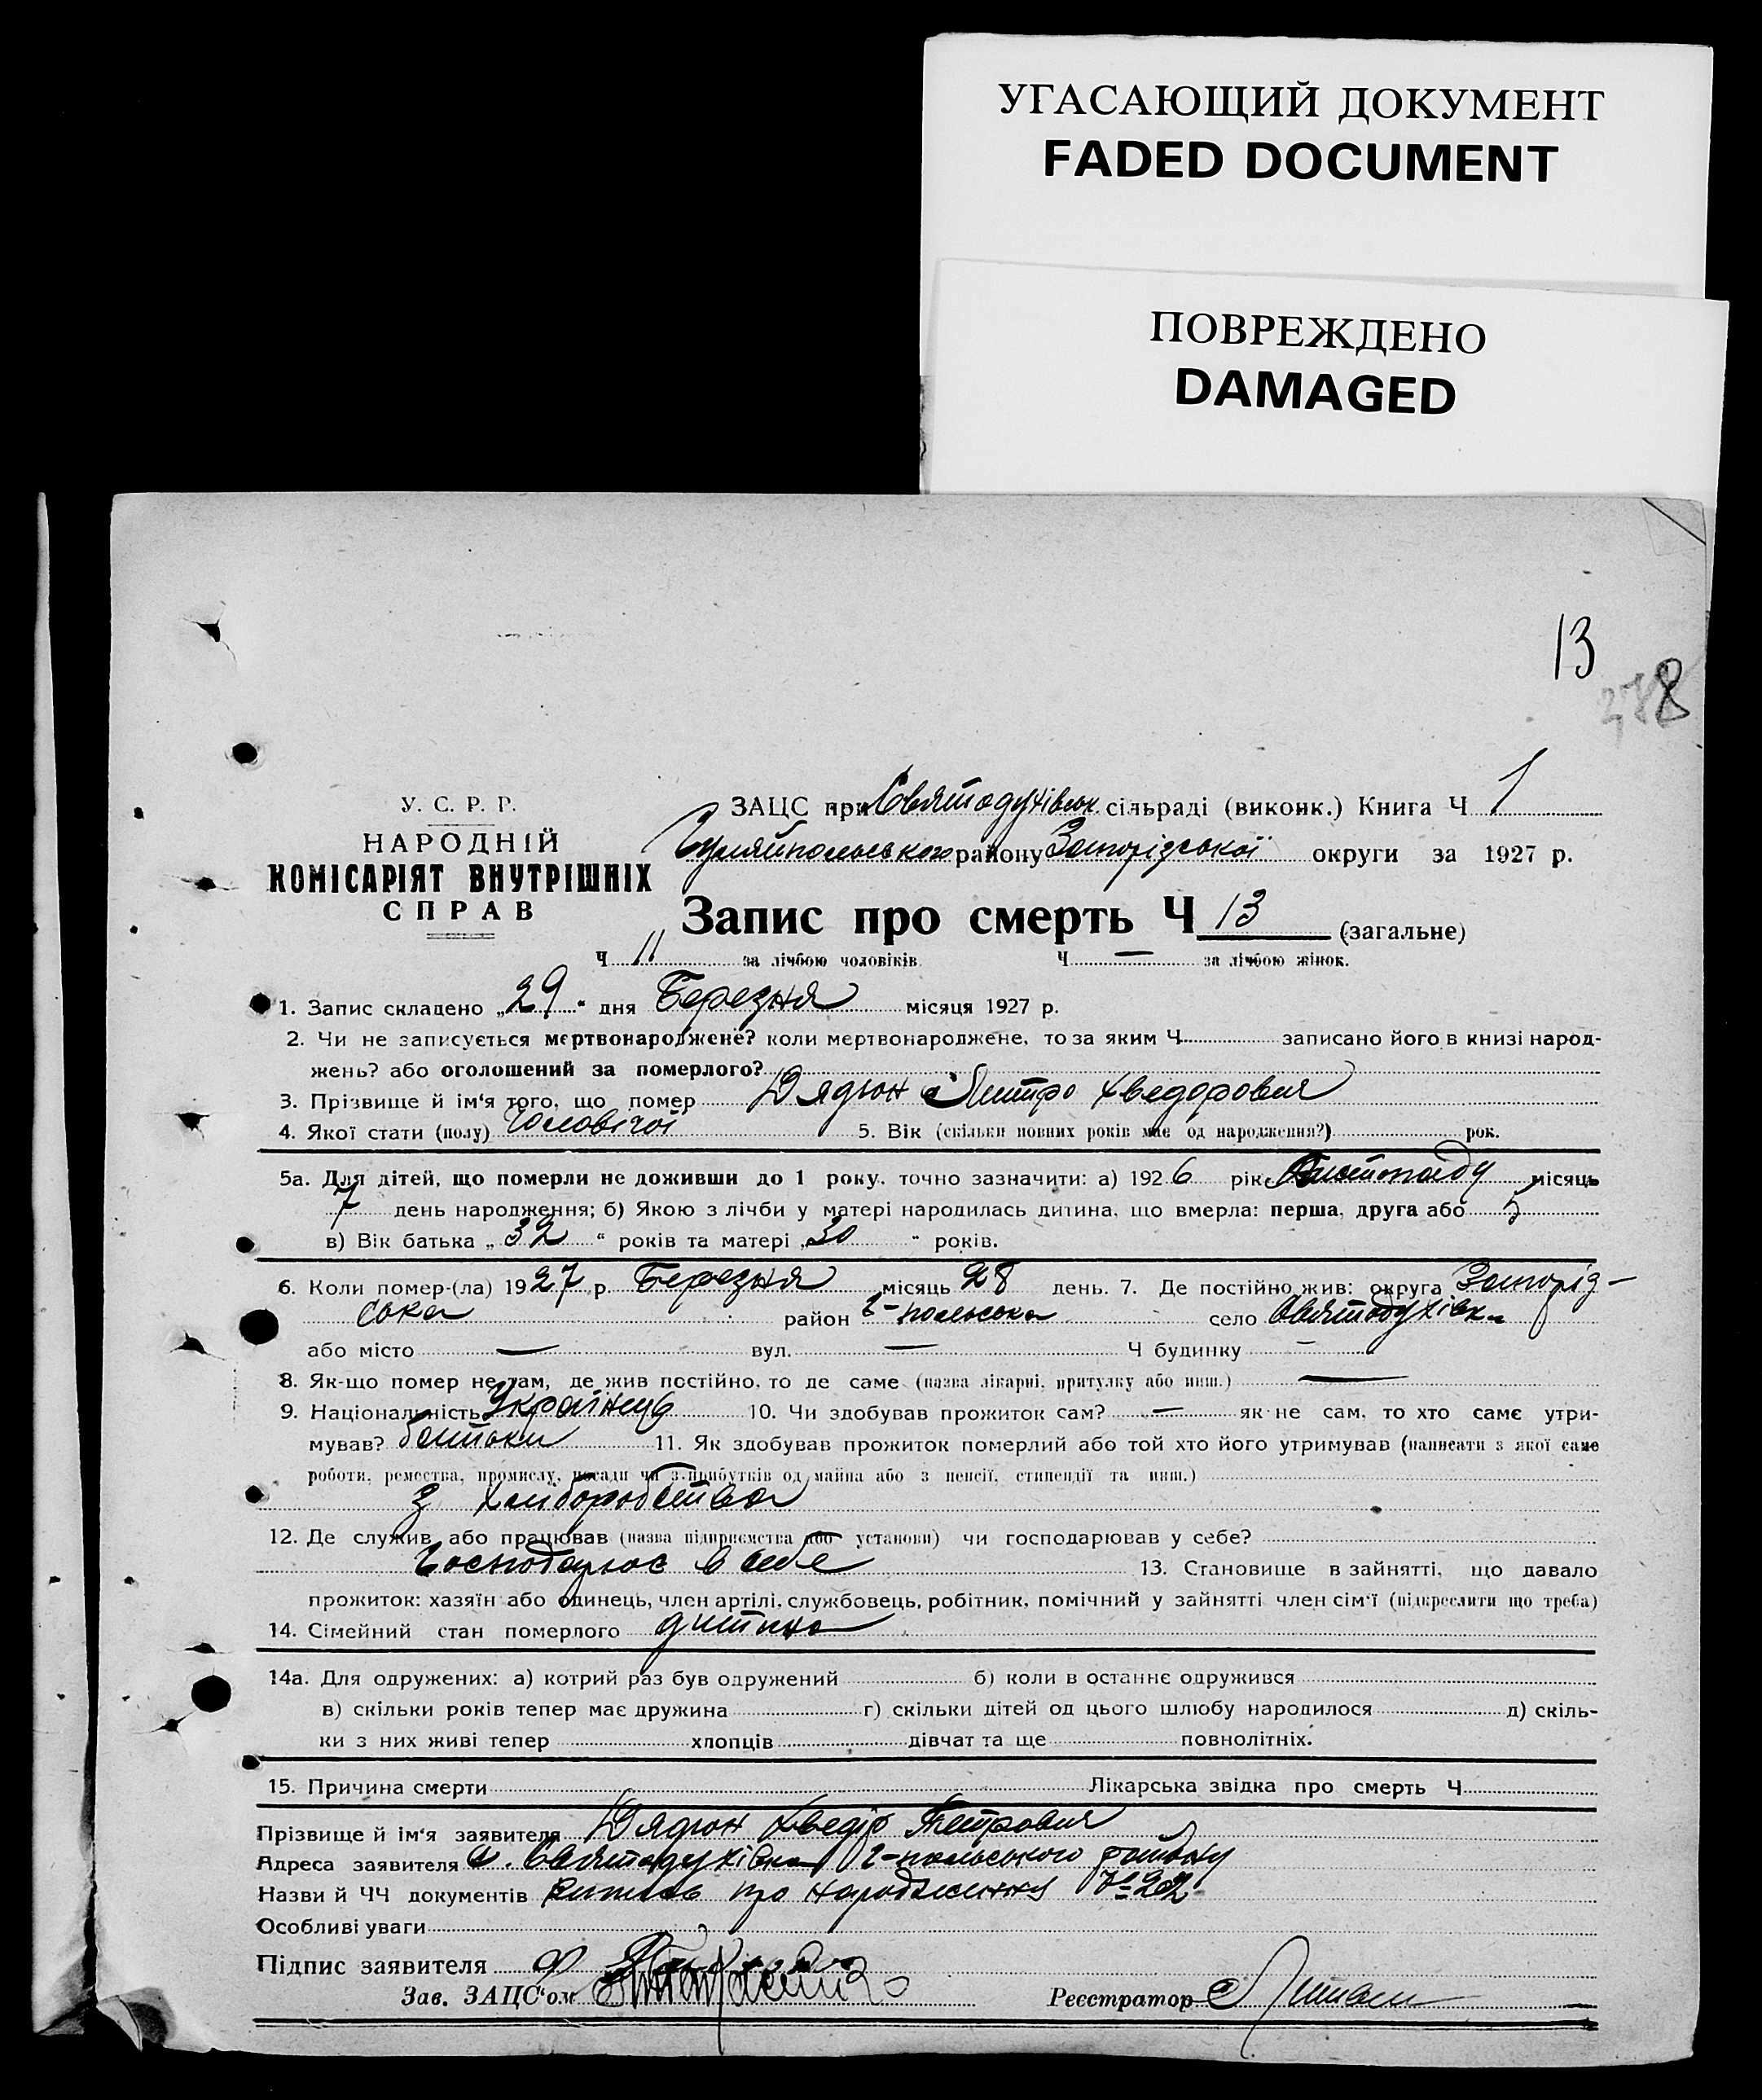 УГАСАЮЩИЙ ДОКУМЕНТ
FADED DOCUMENT
ПОВРЕЖДЕНО
DAMAGED
13
У. С. Р. Р.
НАРОДНІЙ
КОМІСАРІЯТ ВНУТРІШНІХ
СПРАВ
ЗАЦС при Святодухівськ. сільраді (виконк.) Книга Ч 1
Гуляйпольського району Запорізської округи за 1927 р.
Запис про смерть Ч 13 (загальне)
Ч 11 за лічбою чоловіків. Ч — за лічбою жінок.
1. Запис складено „29" дня Березня місяця 1927 р.
2. Чи не записується мертвонароджене? коли мертвонароджене, то за яким Ч записано його в книзі народ-
жень? або оголошений за померлого?
3. Прізвище й ім'я того, що помер Дядюн Дмитро Хведорович
4. Якої стати (полу) Чоловічої 5. Вік (скільки повних років має од народження?) рок.
5а. Для дітей, що померли не доживши до 1 року, точно зазначити: а) 1926 рік Листопаду місяць
7 день народження; б) Якою з лічби у матері народилась дитина, що вмерла: перша, друга або 5
в) Вік батька „32" років та матері „30" років.
6. Коли помер-(ла) 1927 р. Березня місяць 28 день. 7. Де постійно жив: округа Запорід-
ська район Г-польська село Святодухівка
або місто — вул. — Ч будинку —
8. Як-що помер не там, де жив постійно, то де саме (назва лікарні, притулку або инш.) —
9. Національність Українець 10. Чи здобував прожиток сам? — як не сам, то хто саме утри-
мував? батьки 11. Як здобував прожиток померлий або той хто його утримував (написати з якої саме
роботи, ремества, промислу, посади чи з прибутків од майна або з пенсії, стипендії та инш.)
З хліборобства
12. Де служив або працював (назва підприємства або установи) чи господарював у себе?
Господарює в себе 13. Становище в зайнятті, що давало
прожиток: хазяїн або одинець, член артілі, службовець, робітник, помічний у зайнятті член сім'ї (підкреслити що треба)
14. Сімейний стан померлого дитина
14а. Для одружених: а) котрий раз був одружений б) коли в останнє одружився
в) скільки років тепер має дружина г) скільки дітей од цього шлюбу народилося д) скіль-
ки з них живі тепер хлопців дівчат та ще повнолітніх.
15. Причина смерти Лікарська звідка про смерть Ч
Прізвище й ім'я заявителя Дядюн Хведір Петрович
Адреса заявителя с. Святодухівка Г-польського району
Назви й ЧЧ документів про народження №
Особливі уваги
Підпис заявителя
Зав. ЗАЦС'ом Реєстратор